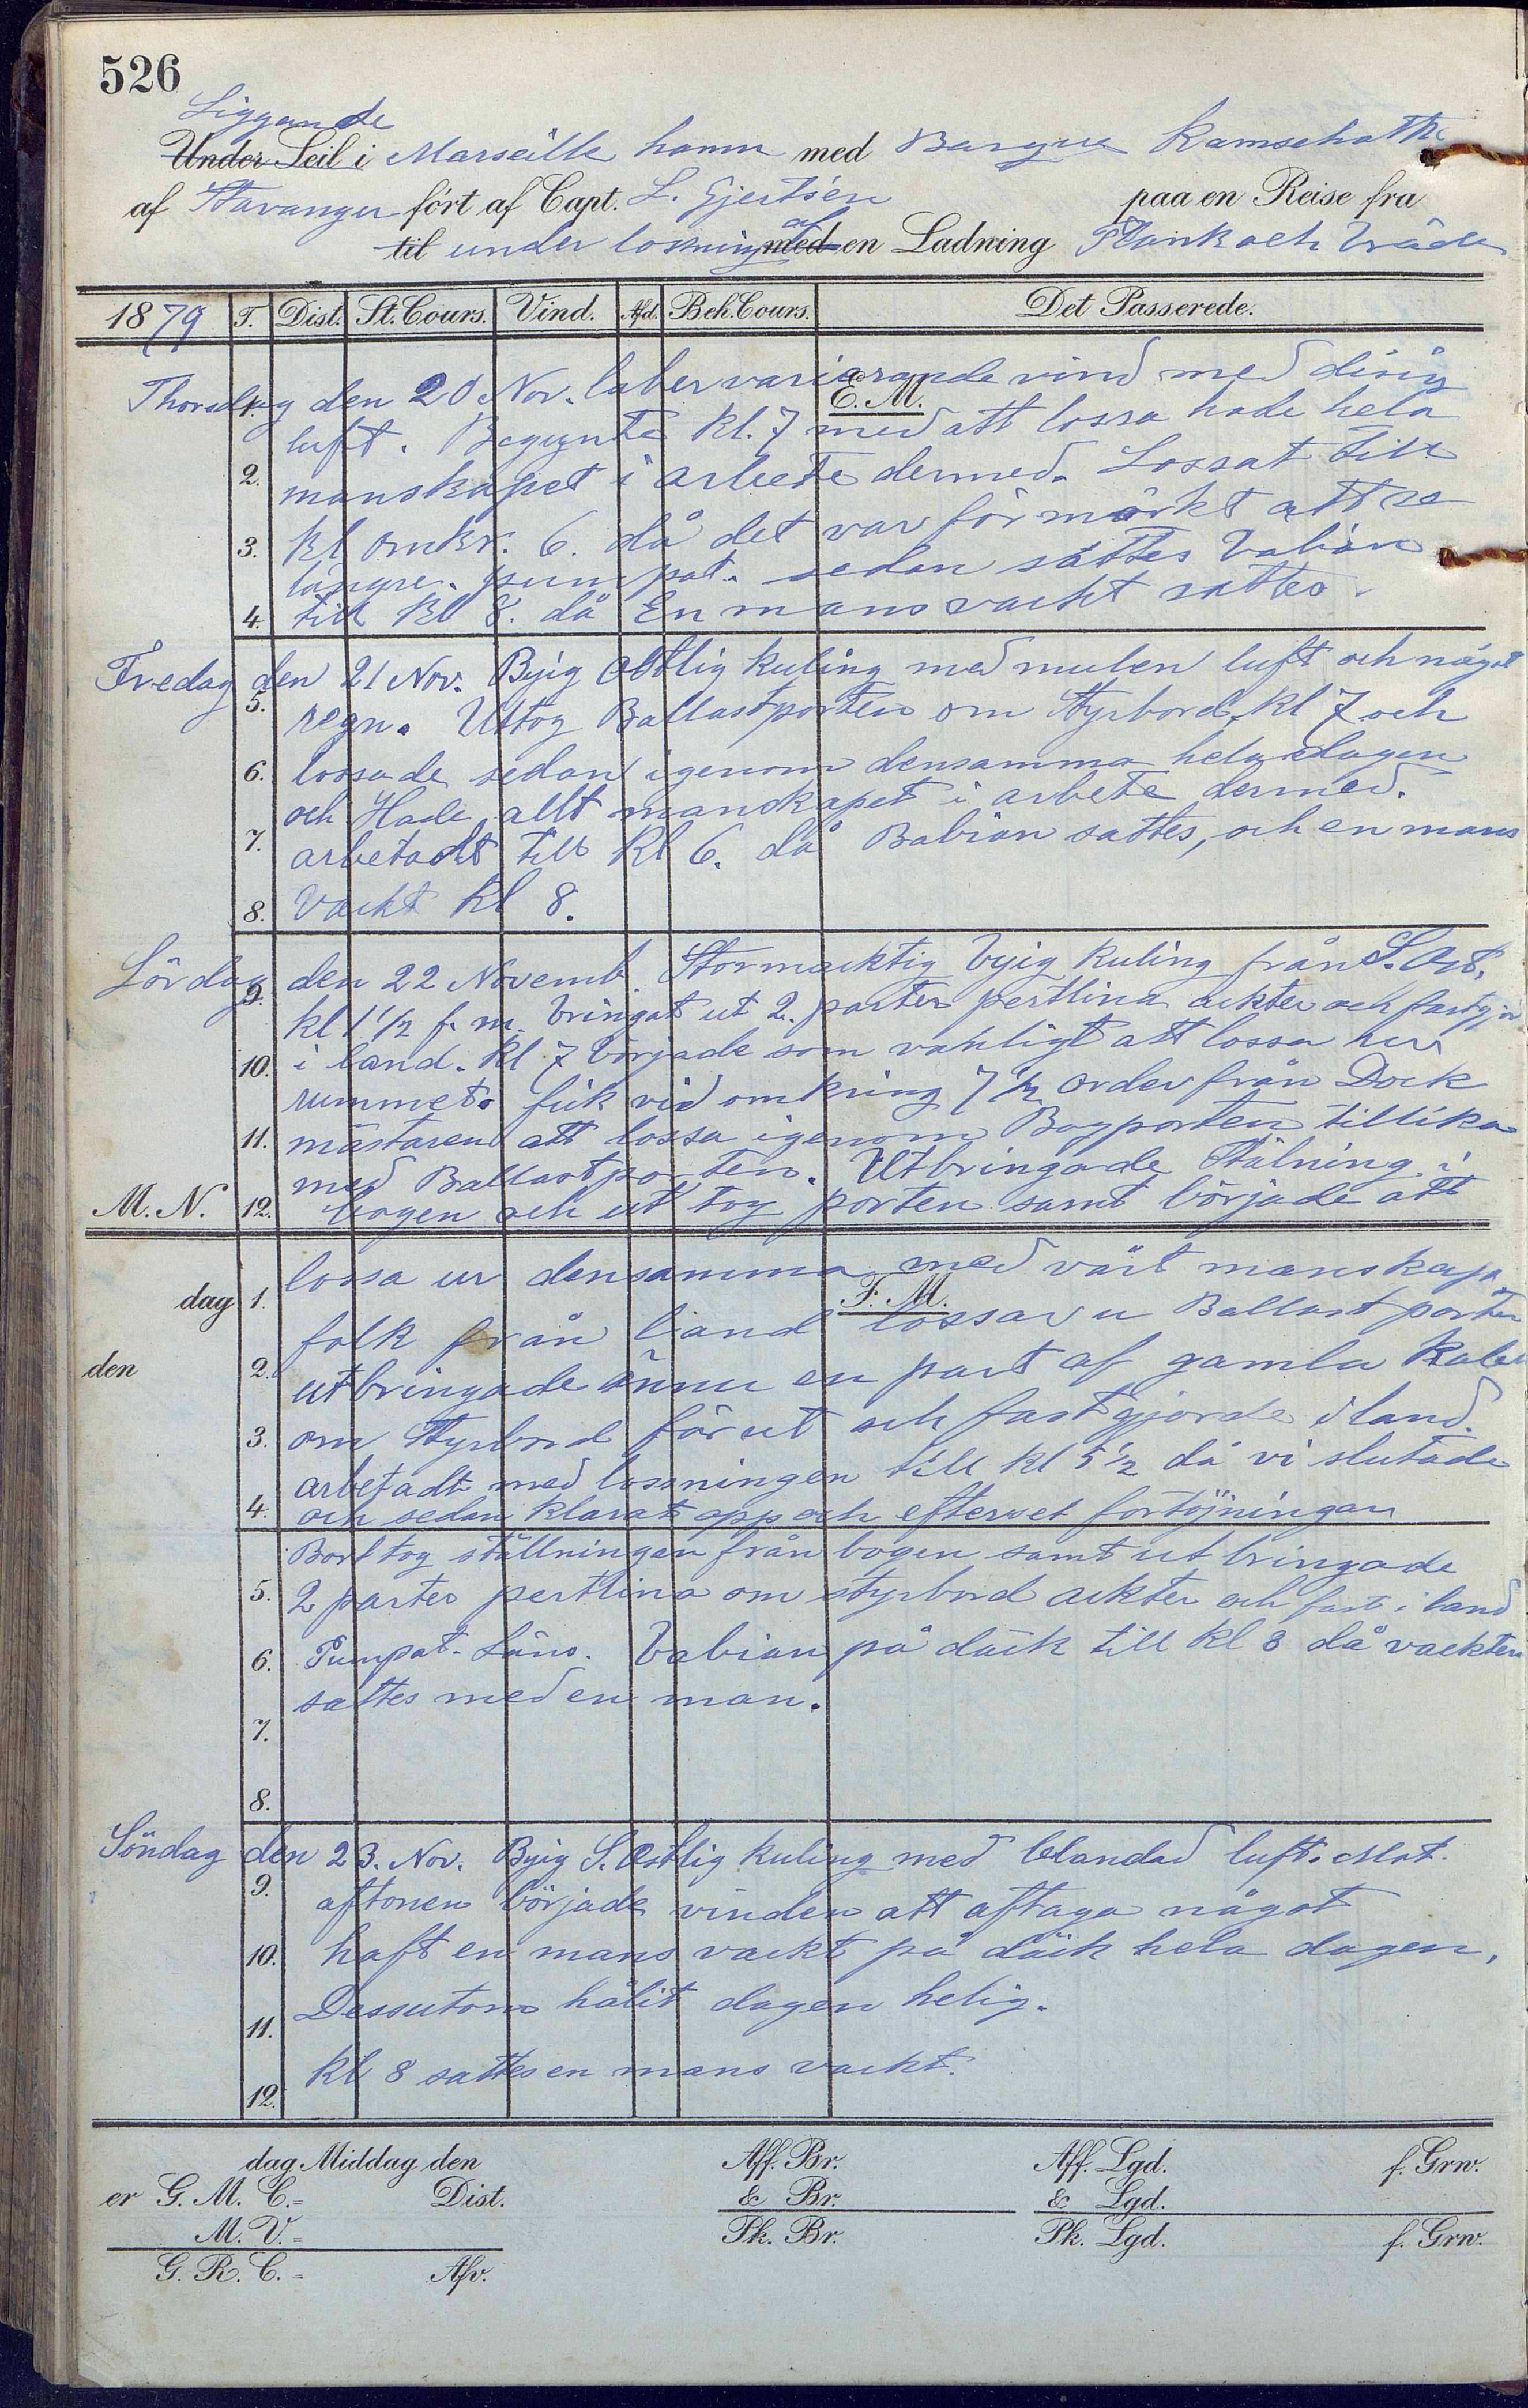 526
Liggande
Under Seil i Marseille hamn med Barque Kamschatka
af Stavanger fört af Capt. L. Gjertsen paa en Reise fra
til under lossning af med en Ladning Plank och Bräder
1879 T. Dist. St. Cours. Vind. Afd. Beh. Cours. Det Passerede.
E. M.
Thorsdag 1. den 20 Nov. laber varierande vind med disig
luft. Begynte kl. 7 med att lossa hade hela
2. manskapet i arbete dermed. Lossat till
3. kl omkr. 6. då det var för mörkt att se
längre. pumpat. sedan sattes Babian
4. till kl 8. då En mans vackt sattes.
Fredag den 21 Nov. Byig Ostlig kuling med mulen luft och något
5. regn. Uttog Ballastporten om Styrbord kl 7 och
6. lossade sedan igenom densamma hela dagen
och Hade allt manskapet i arbete dermed.
7. arbetadt till kl 6. då Babian sattes, och en mans
8. Vackt kl 8.
Lördag 9. den 22 Novemb. Stormacktig byig kuling från S. Ost.
kl 1 1/2 f. m. bringat ut 2. parter pertlina ackter och fastgjor
10. i land. Kl 7 började som vanligt att lossa ur
rummet. fick vid omkring 7 1/2 order från Dock
11. mästaren att lossa igenom Bogporten tillika
med Ballastporten. Utbringade Stälning i
M. N. 12. bogen och ut tog porten samt började att
F. M.
dag 1. lossa ur densamma med vårt manskap.
folk från land lossar u Ballast porten
den 2. utbringade ännu en part af gamla Kabel
3. om Styrbord förut och fastgjorde i land.
arbetadt med lossningen till kl 5 1/2 då vi slutade
4. och sedan klarat opp och efterset förtöjningar
Borttog ställningen från bogen samt ut bringade
5. 2 parter pertlina om styrbord ackter och fast i land
6. Pumpat Läns. Babian på däck till kl 8 då vackten
sattes med en man.
7.
8.
Söndag den 23. Nov. Byig S. Ostlig kuling med blandad luft. Mot
9. aftonen började vinden att aftaga något
10. haft en mans vackt på däck hela dagen.
11. Dessutom hålit dagen helig.
12. kl 8 sattes en mans vackt.
dag Middag den Aff. Br. Aff. Lgd. f. Grw.
er G. M. C. = Dist. & Br. & Lgd.
M. V. = Pk. Br. Pk. Lgd. f. Grw.
G. R. C. = Afv.